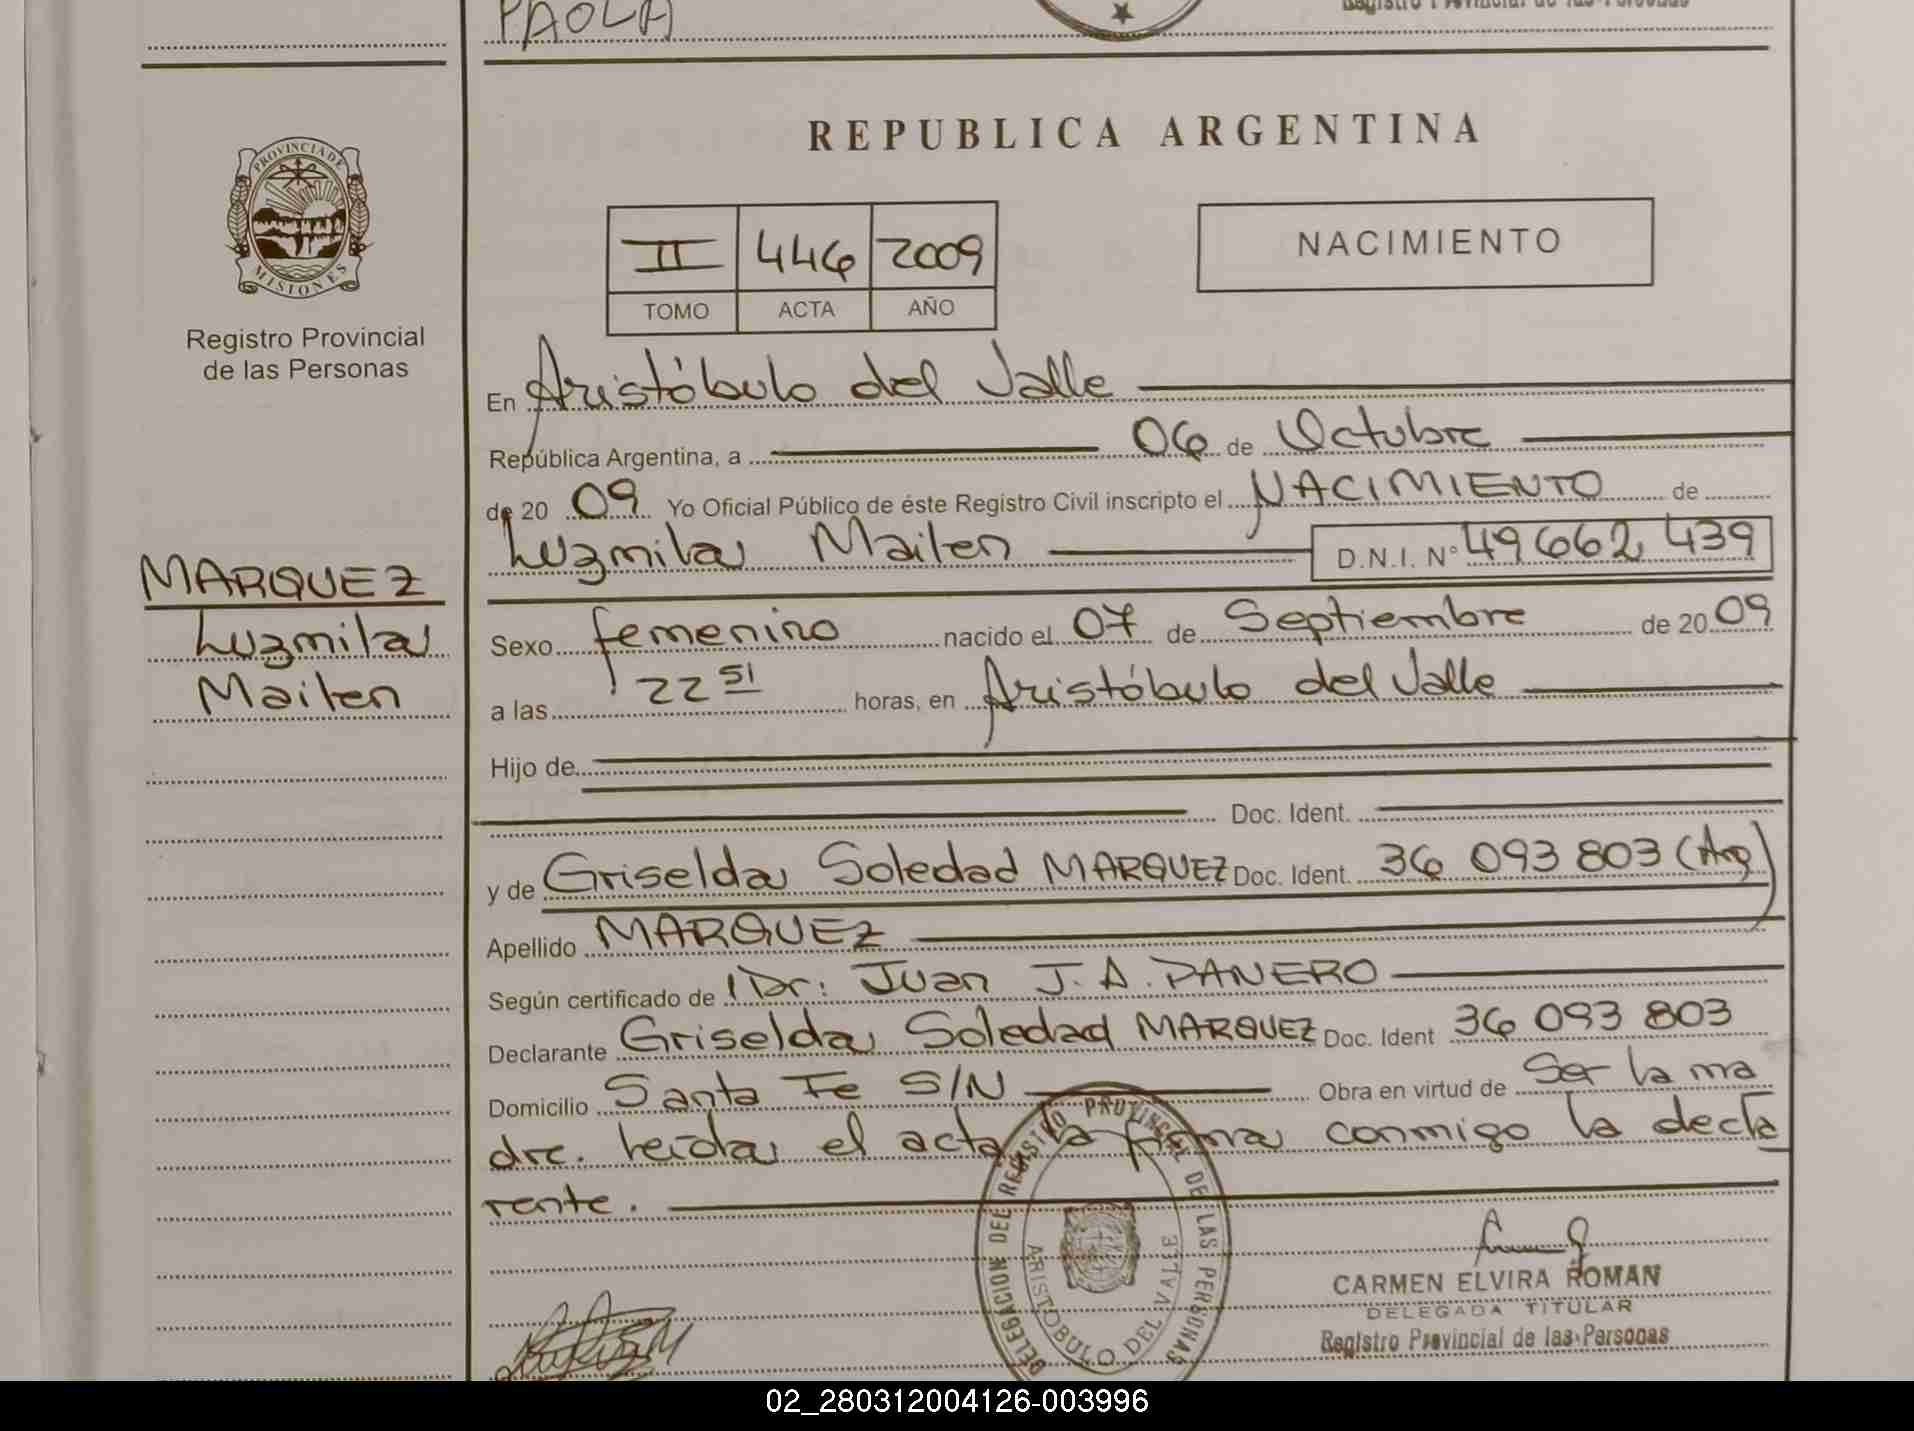 PAOLA
Registro Provincial de las Personas
PROVINCIA DE
MISIONES
Registro Provincial
de las Personas
REPUBLICA ARGENTINA
II 446 2009
TOMO ACTA AÑO
NACIMIENTO
En Aristóbulo del Valle
República Argentina, a 06 de Octubre
de 20 09 Yo Oficial Público de éste Registro Civil inscripto el NACIMIENTO de
Luzmila Mailen D.N.I. N° 49 662 439
MARQUEZ
Luzmila
Mailen
Sexo femenino nacido el 07 de Septiembre de 20 09
a las 22 51 horas, en Aristóbulo del Valle
Hijo de
Doc. Ident.
y de Griselda Soledad MARQUEZ Doc. Ident. 36 093 803 (Arg)
Apellido MARQUEZ
Según certificado de Dr: Juan J. A. PANERO
Declarante Griselda Soledad MARQUEZ Doc. Ident 36 093 803
Domicilio Santa Fe S/N Obra en virtud de Ser la ma
dre. Leída el acta la firma conmigo la decla
rante.
DELEGACION DEL REGISTRO PROVINCIAL DE LAS PERSONAS
ARISTOBULO DEL VALLE
CARMEN ELVIRA ROMAN
DELEGADA TITULAR
Registro Provincial de las Personas
02_280312004126-003996